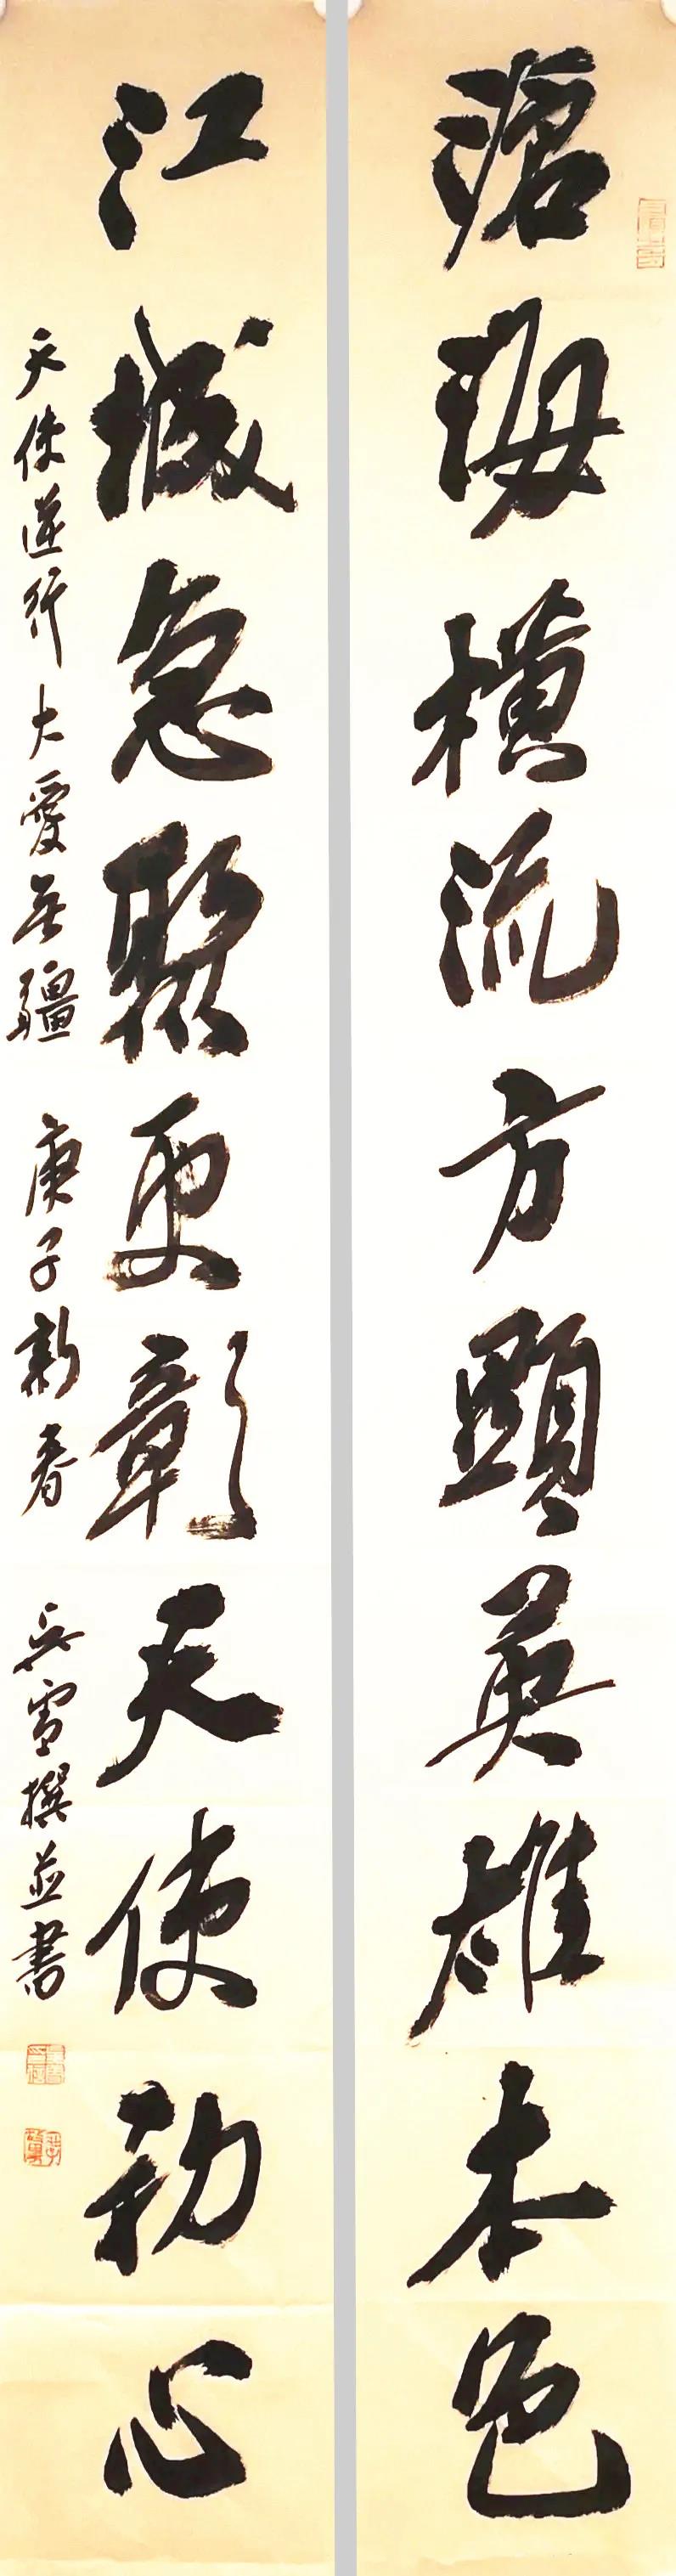 滄海橫流方顯英雄本色
江城急聚更彰天使初心
天使逆行大愛無疆 庚子新春 吳雪撰並書